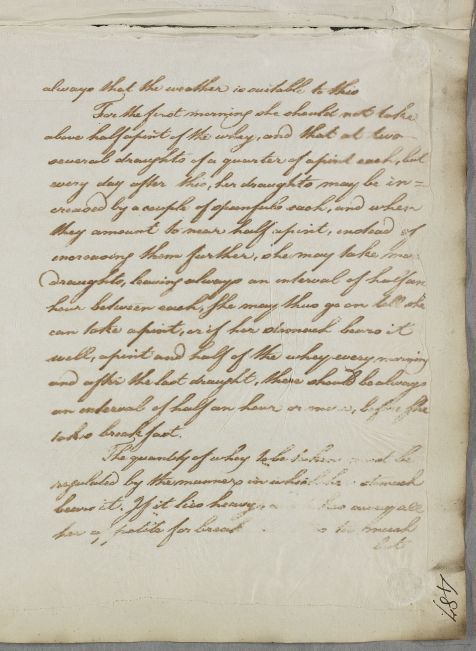 always that the weather is suitable to this
For the first morning she should not take
above half a pint of the whey, and that at two
several draughts of a quarter of a pint each, but
every day after this, her draughts may be in=
creased by a couple of spoonfuls each, and when
they amount to near half a pint, instead of
increasing them further, she may take more
draughts, leaving always an interval of half an
hour between each, She may thus go on till she
can take a pint, or if her stomach bears it
well, a pint and half of the whey every morning
and after the last draught, there should be always
an interval of half an hour or more, before She
takes breakfast.
The quantity of whey to be taken must be
regulated by the manner in which her stomach
bears it. If it lies heavy takes away all
her appetite for break is too much
but
487